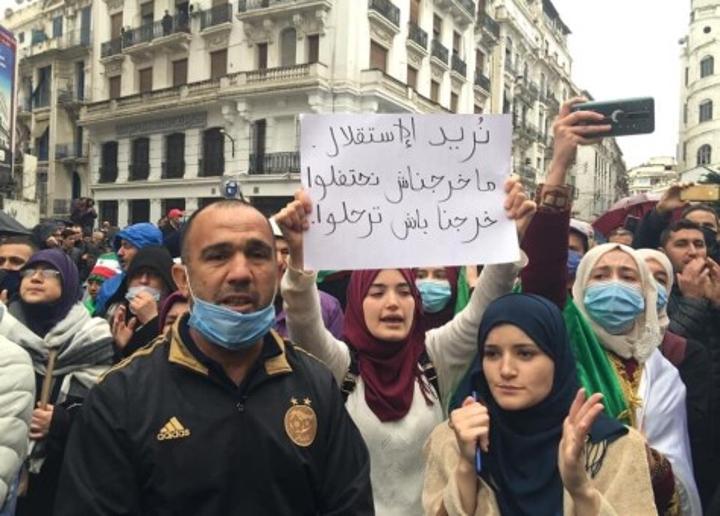 نريد الإستقلال.
ما خرجناش نحتفلوا
خرجنا باش ترحلوا.
adidas